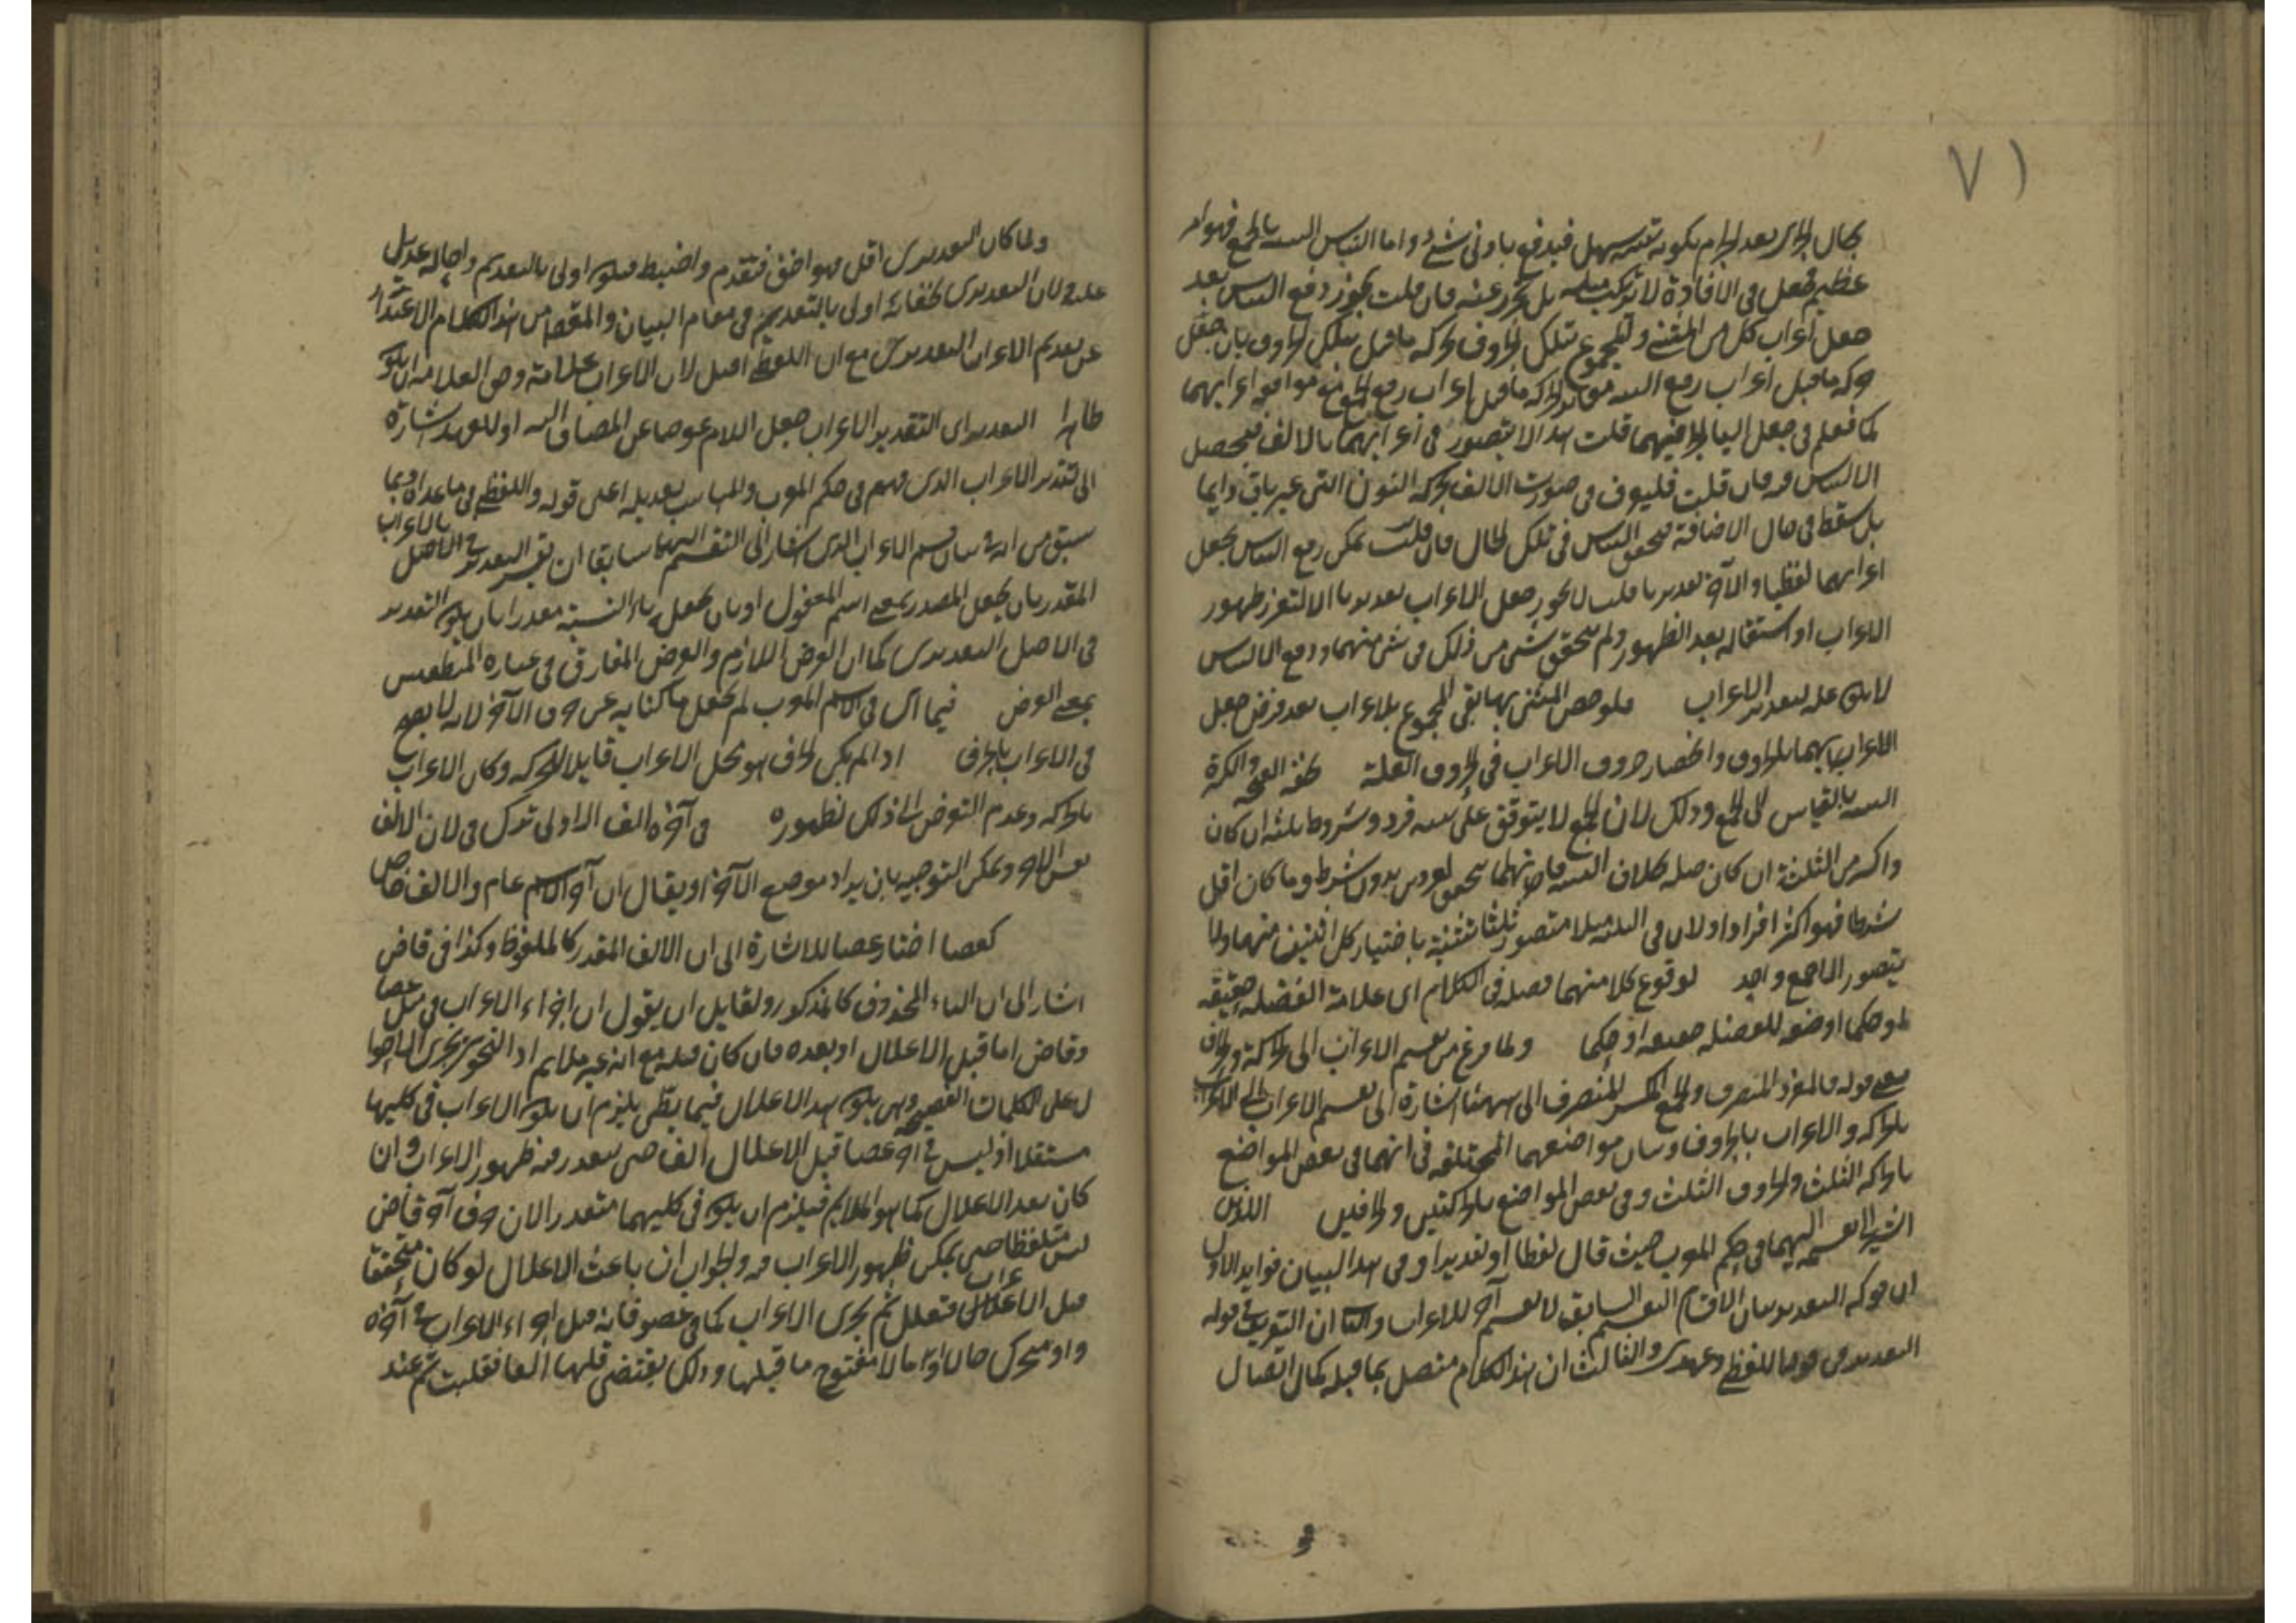 ٧١
بحال الجر بعد الجزم بكونه تقديره سهل فيدفع بادنى شئ واما التباس التثنية بالجمع فهو امر
عظيم مخل فى الافادة لا يرتكب مثله بل يتحرز عنه فان قلت يجوز دفع التباس بعد
جعل اعراب كل من المثنى والمجموع بتلك الحروف بحركة ما قبل تلك الحروف بان جعل
حركة ما قبل اعراب رفع التثنية وحركة ما قبل اعراب رفع الجمع موافقه اعرابهما
كما فعلم فى جعل اليا فيهما قلت هذا لا يتصور فى اعرابهما بالالف فيحصل
الالتباس فيه فان قلت فليعرف فى صورت الالف بحركة النون التى غير باق دايما
بل سقط فى حال الاضافة فيتحقق التباس فى تلك الحال فان قلت يمكن رفع التباس بجعل
اعرابهما لفظيا والآخر تقديريا قلت لا يجوز جعل الاعراب تقديريا الا لتعذر ظهور
الاعراب او استثقاله بعد الظهور ولم يتحقق شئ من ذلك فى شئ منهما ودفع الالتباس
لا يكون علة لتقدير الاعراب فلو خص المثنى بها بقى المجموع بلا اعراب بعد فرض جعل
الاعراب بهما بالحروف وانحصار حروف الاعراب فى حروف العلة لخفة الفتحه والكثرة
التثنية بالقياس الى الجمع وذلك لان الجمع لا يتوقف على تثنية فرد وشروط ثلثه ان كان
واكثر من الثلثة ان كان جمله بخلاف التثنية فانها يتحقق بفردين بدون شرط وما كان اقل
شرطا فهو اكثر افرادا ولان فى الثلثة مثلا متصور ثلثا تثنية باختيار كل اثنين منهما ولا
يتصور الا جمع واحد لوقوع كلا منهما فصله فى الكلام اى علامة الفضله حقيقه
او حكما او ضعه للفضله حقيقه او حكما ولما فرغ من تقسيم الاعراب الى الحركة والحرف
معنى قوله فالمفرد المنصرف والجمع المكسر المنصرف الى ههنا اشارة الى تقسيم الاعراب الى الاعراب
بالحركة والاعراب بالحروف وبيان مواضعهما المختلفه فى انهما فى بعض المواضع
بالحركة الثلث والحروف الثلث وفى بعض المواضع بالحركتين والحرفين اللذين
اشير الى تقسيمه اليهما فى حكم المعرب حيث قال لفظا او تقديرا وفى هذا البيان فوايد الاول
ان قوله التقدير بيان لاقسام التقسيم السابق لا تقسيم آخر للاعراب والثانى ان التعريف فى قوله
التقدير فى قوله اللفظى وعهدى والثالث ان هذا الكلام متصل بما قبله كمال اتصال
ولما كان التقديرى اقل فهو اخف فتقدم واضبط فيكون اولى بالتقديم واحاله عديل
عليه لان التقديرى لخفائه اولى بالتقديم فى مقام البيان والمقصد من هذا الكلام الاعتذار
عن تقديم الاعراب التقديرى مع ان اللفظى اصل لان الاعراب علامة وحق العلامة ان يكون
ظاهرا التقدير اى التقدير الاعراب جعل اللام عوضا عن المضاف اليه او للعهد اشارة
الى تقدير الاعراب الذى فهم فى حكم المعرب والمناسب بعديله اعنى قوله واللفظى فى ما عداه وبما
سبق من انه فى بيان قسم الاعراب الذى اشار الى التقسيم اليهما سابقا ان يفسر التقدير بالاعراب فى الاصل
المقدر بان يجعل المصدر بمعنى اسم المفعول او بان يجعل ياء النسبة مقدرا بان يكون التقدير
فى الاصل التقديرى كما ان العرض اللازم والعرض المفارق فى عبارة المنطقيين
بمعنى العرض فيما اى فى الاسم المعرب لم يجعل ما كناية عن حرف الآخر لانه لا يصح
فى الاعراب بالحرف اذ لم يكن الحرف هو محل الاعراب قابلا للحركة وكان الاعراب
بالحركة وعدم التعرض الى ذلك لظهوره فى آخره الف الاولى ترك فى لان الالف
نفس الآخر ويمكن التوجيه بان يراد موضع الآخر او يقال ان آخر الاسم عام والالف خاص
كعصا اختار عصا للاشارة الى ان الالف المقدر كالملفوظ وكذا فى قاض
اشار الى ان الياء المحذوف كالمذكور ولقايل ان يقول ان اجراء الاعراب فى مثل عصا
وقاض اما قبل الاعلال او بعده فان كان قبله مع انه غير ملايم اذ النحوى يجرى الاحوال
على الكلمات الفصيحه وهى يكون بعد الاعلال فيما يظن يلزم ان يكون الاعراب فى كليهما
مستثقلا اذ ليس فى آخر عصا قبل الاعلال الفا حتى يتعذر منه ظهور الاعراب وان
كان بعد الاعلال كما هو الملايم فيلزم ان يكون فى كليهما متعذر الان حرف آخر قاض
ليس متلفظا حتى يمكن ظهور الاعراب فيه والجواب ان باعث الاعلال لو كان متحققا
قبل الاعراب فتعلل ثم يجرى الاعراب كما فى عصو فانه قبل اجراء الاعراب فى آخره
واو متحرك حالا او مآلا مفتوح ما قبلها وذلك يقتضى قلبها الفا فقلبت ثم عند